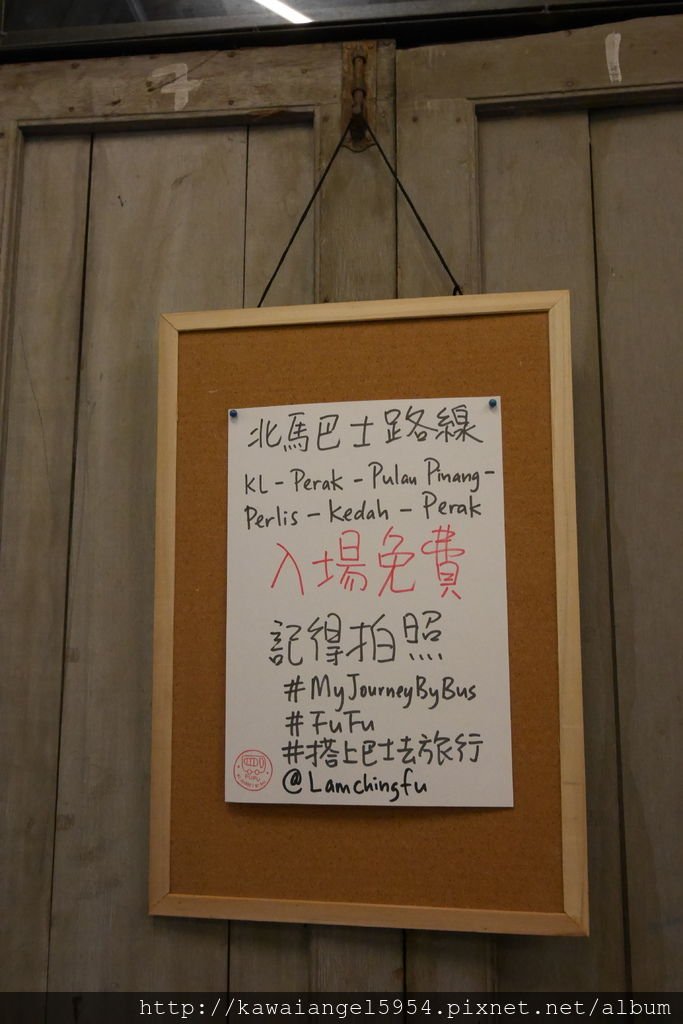 北馬巴士路線
KL - Perak - Pulau Pinang -
Perlis - Kedah - Perak
入場免費
記得拍照
#MyJourneyByBus
#FuFu
#搭上巴士去旅行
@Lamchingfu
http://kawaiangel5954.pixnet.net/album